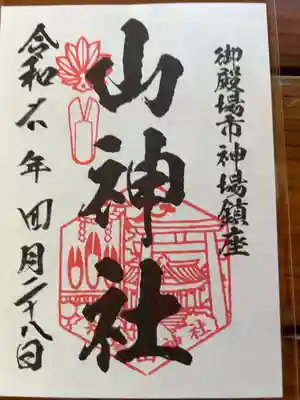 御殿場市神場鎮座
山神社
令和六年四月二十八日